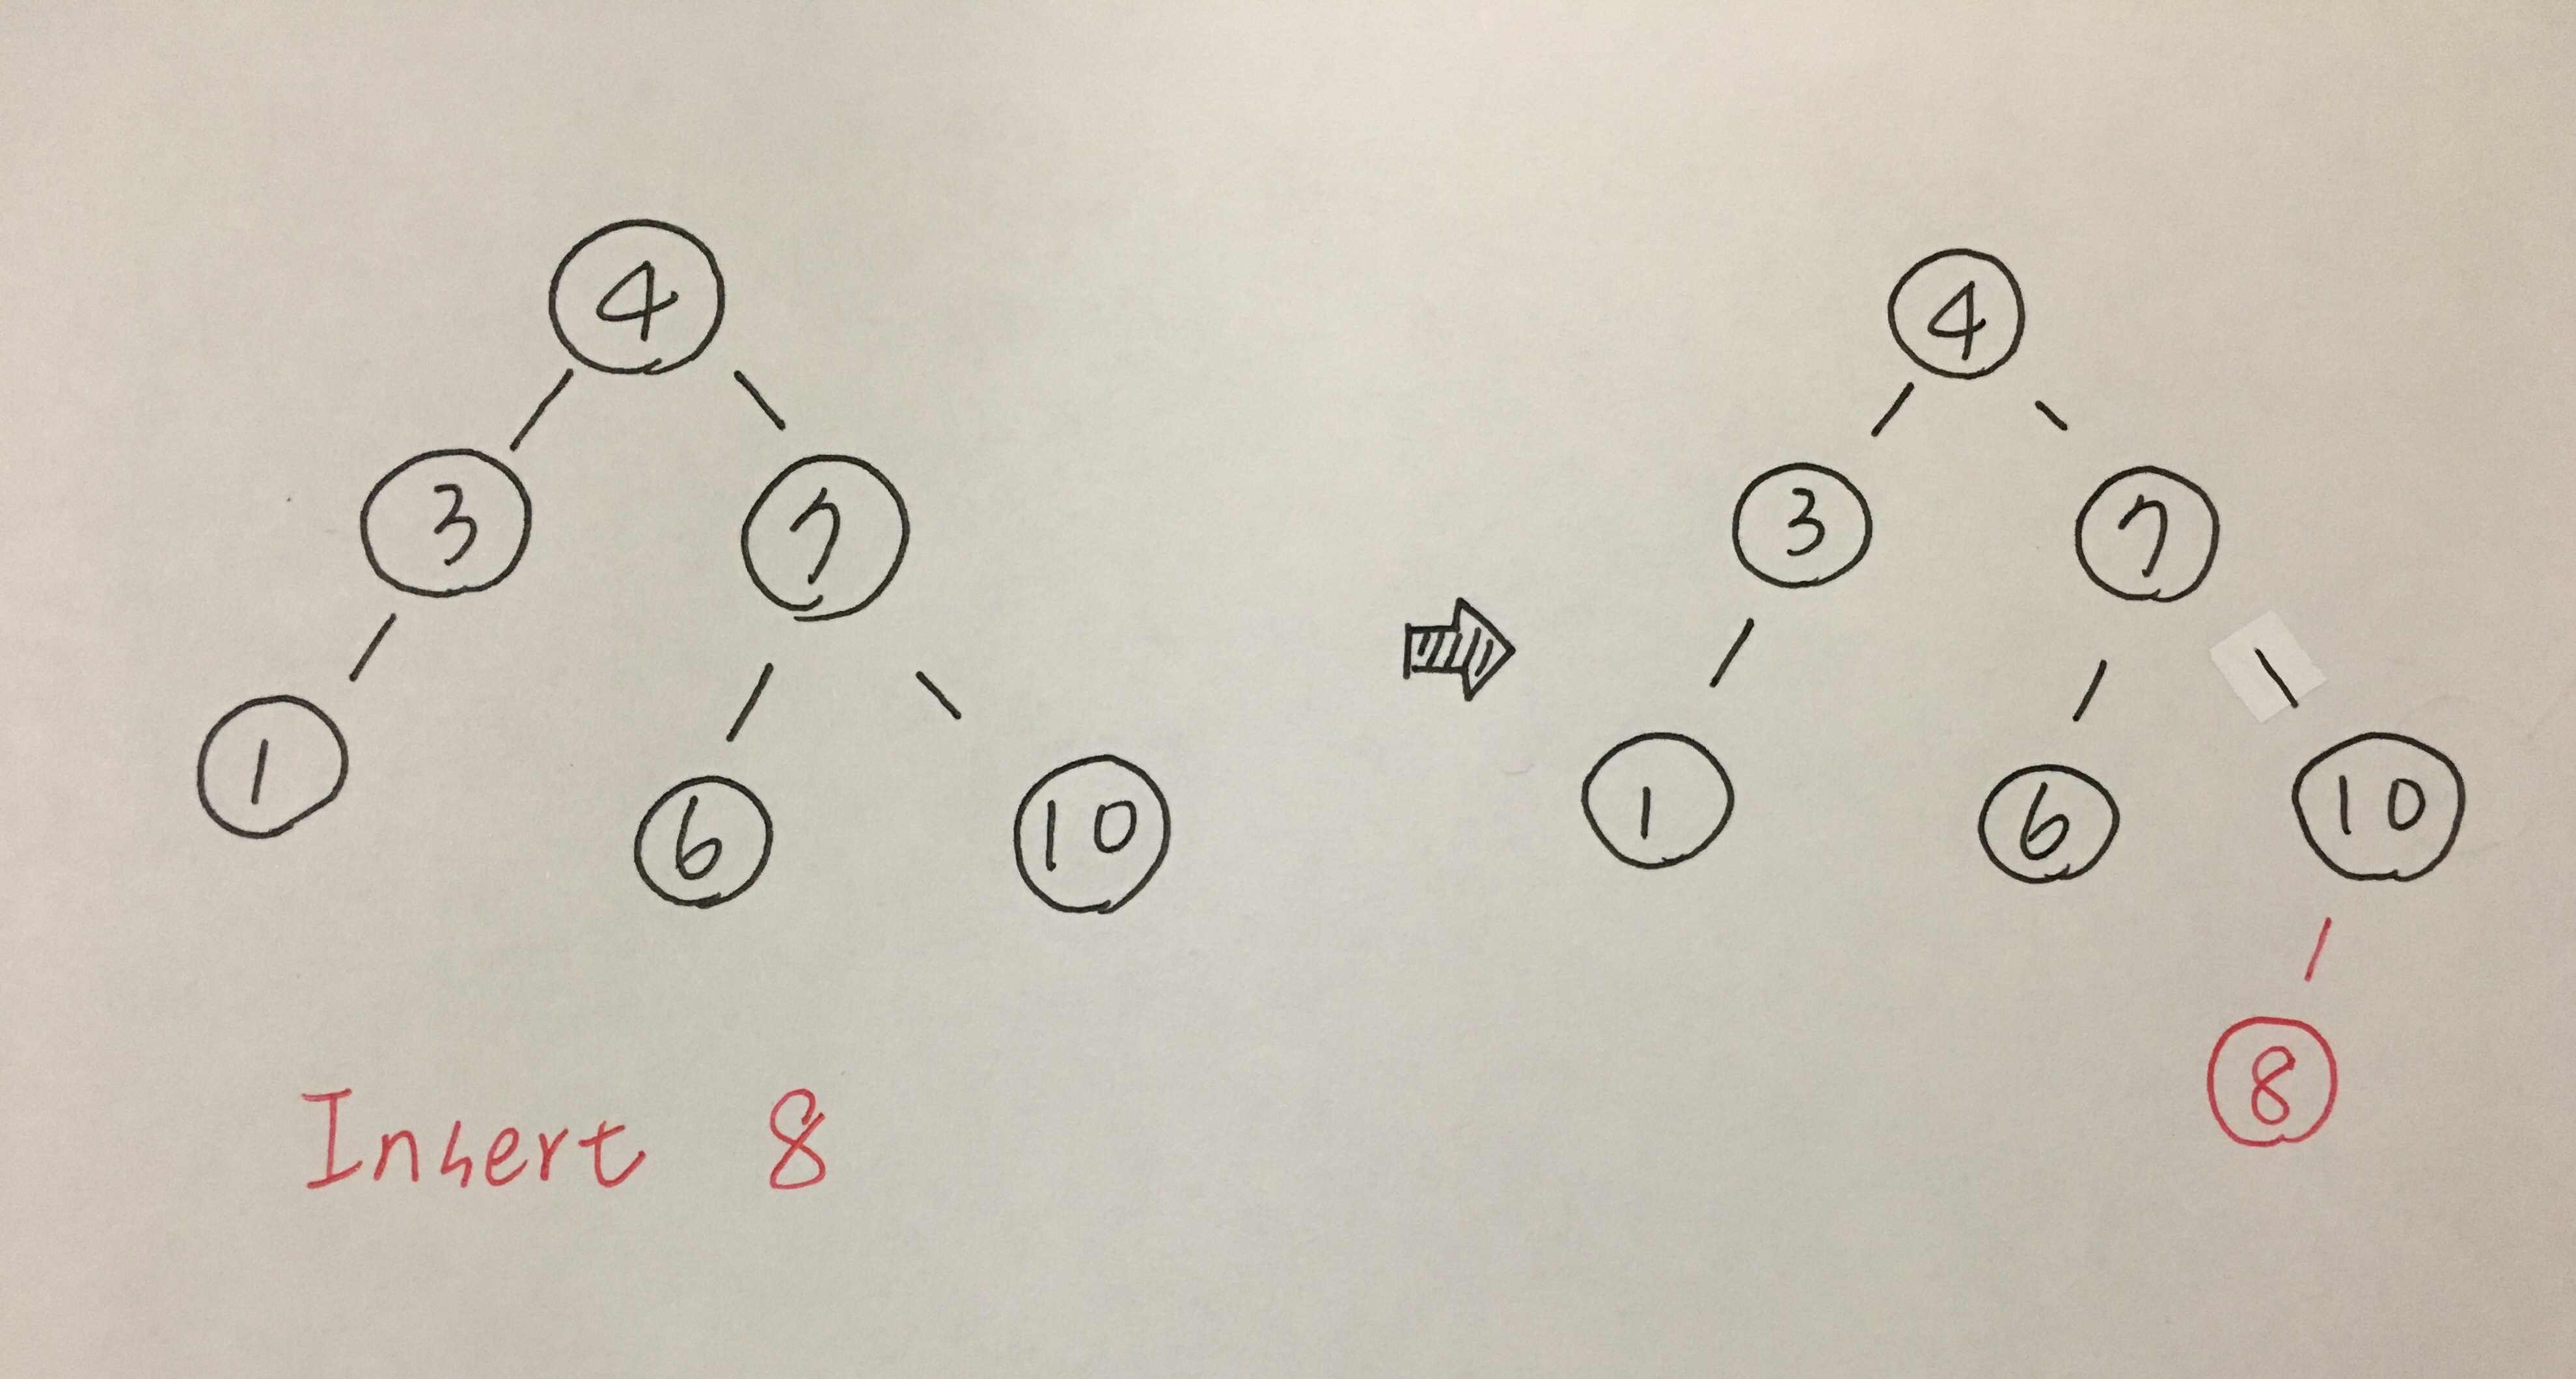 4
3 7
1 6 10
Insert 8
4
3 7
1 6 10
8